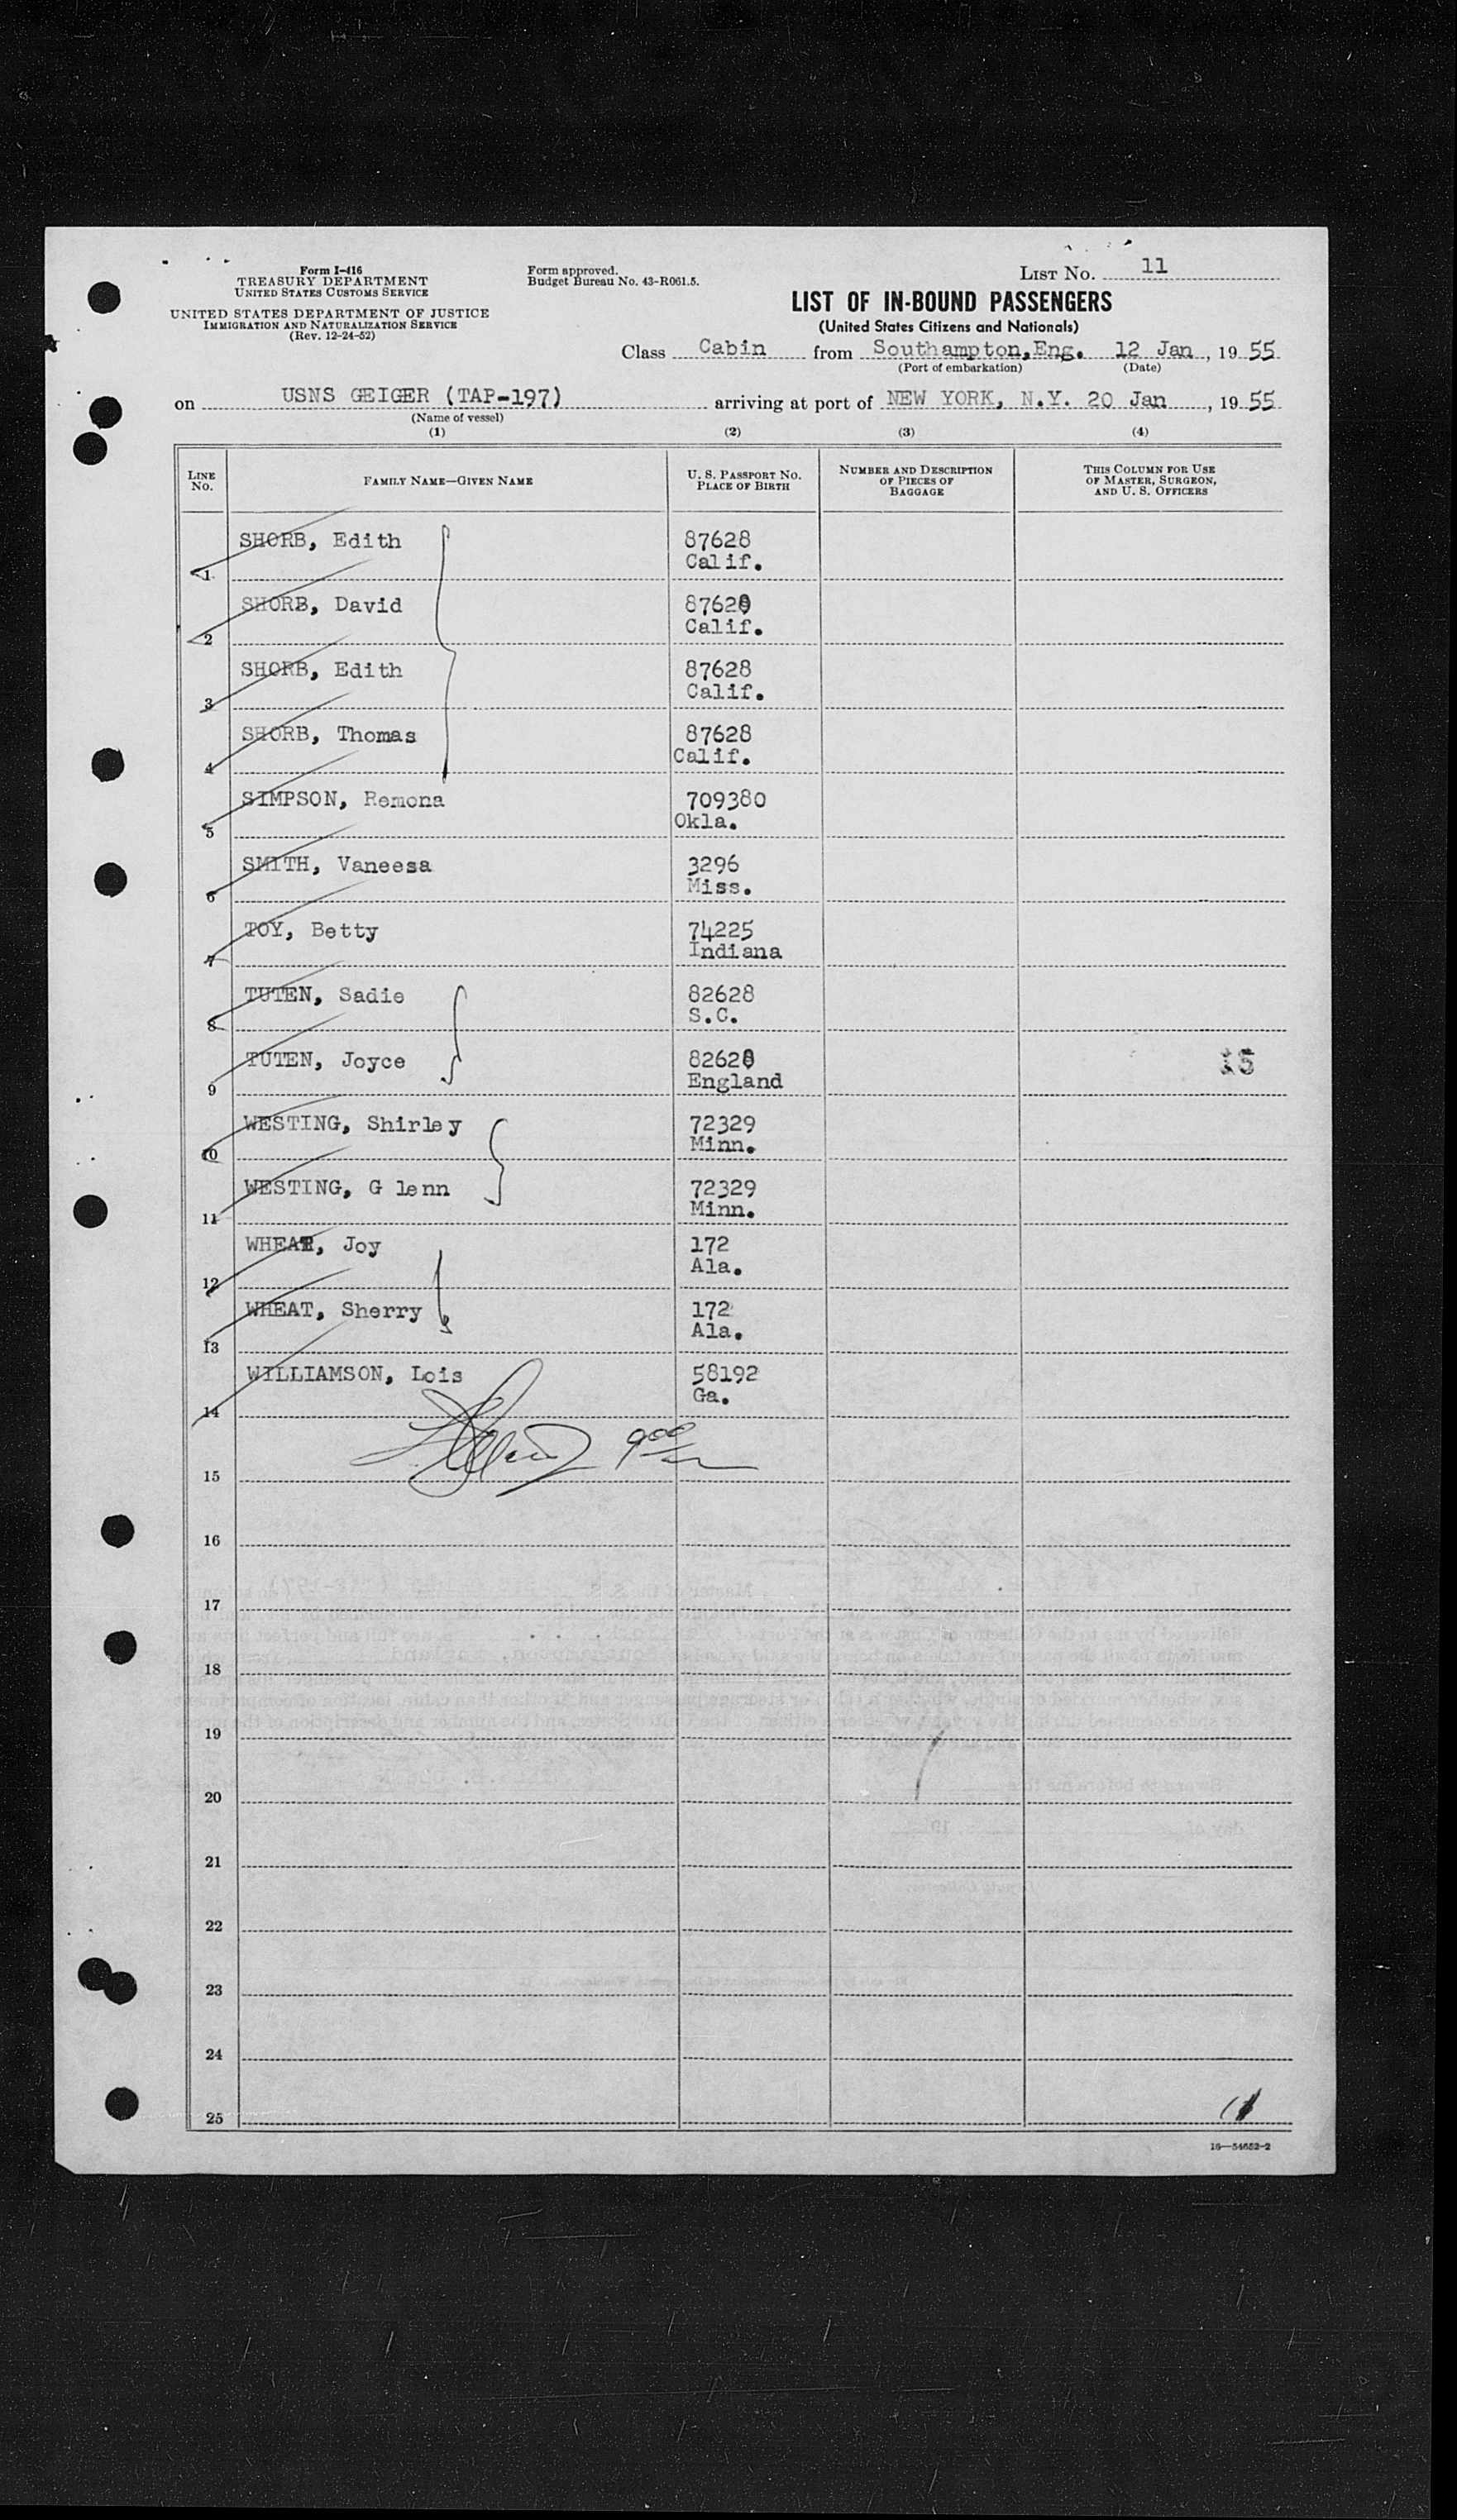 Form I-416
TREASURY DEPARTMENT
UNITED STATES CUSTOMS SERVICE
UNITED STATES DEPARTMENT OF JUSTICE
IMMIGRATION AND NATURALIZATION SERVICE
(Rev. 12-24-52)
Form approved.
Budget Bureau No. 43-R061.5.
LIST No. 11
LIST OF IN-BOUND PASSENGERS
(United States Citizens and Nationals)
Class Cabin from Southampton,Eng. 12 Jan, 19 55
(Port of embarkation) (Date)
on USNS GEIGER (TAP-197) arriving at port of NEW YORK, N.Y. 20 Jan, 19 55
(Name of vessel)
(1) (2) (3) (4)
LINE No. FAMILY NAME—GIVEN NAME U. S. PASSPORT No. PLACE OF BIRTH NUMBER AND DESCRIPTION OF PIECES OF BAGGAGE THIS COLUMN FOR USE OF MASTER, SURGEON, AND U. S. OFFICERS
SHORB, Edith 87628
1 Calif.
SHORB, David 87628
2 Calif.
SHORB, Edith 87628
3 Calif.
SHORB, Thomas 87628
4 Calif.
SIMPSON, Remona 709380
5 Okla.
SMITH, Vaneesa 3296
6 Miss.
TOY, Betty 74225
7 Indiana
TUTEN, Sadie 82628
8 S.C.
TUTEN, Joyce 82628 15
9 England
WESTING, Shirley 72329
10 Minn.
WESTING, G lenn 72329
11 Minn.
WHEAT, Joy 172
12 Ala.
WHEAT, Sherry 172
13 Ala.
WILLIAMSON, Lois 58192
14 Ga.
15 900
16
17
18
19
20
21
22
23
24
25
16—54652-2